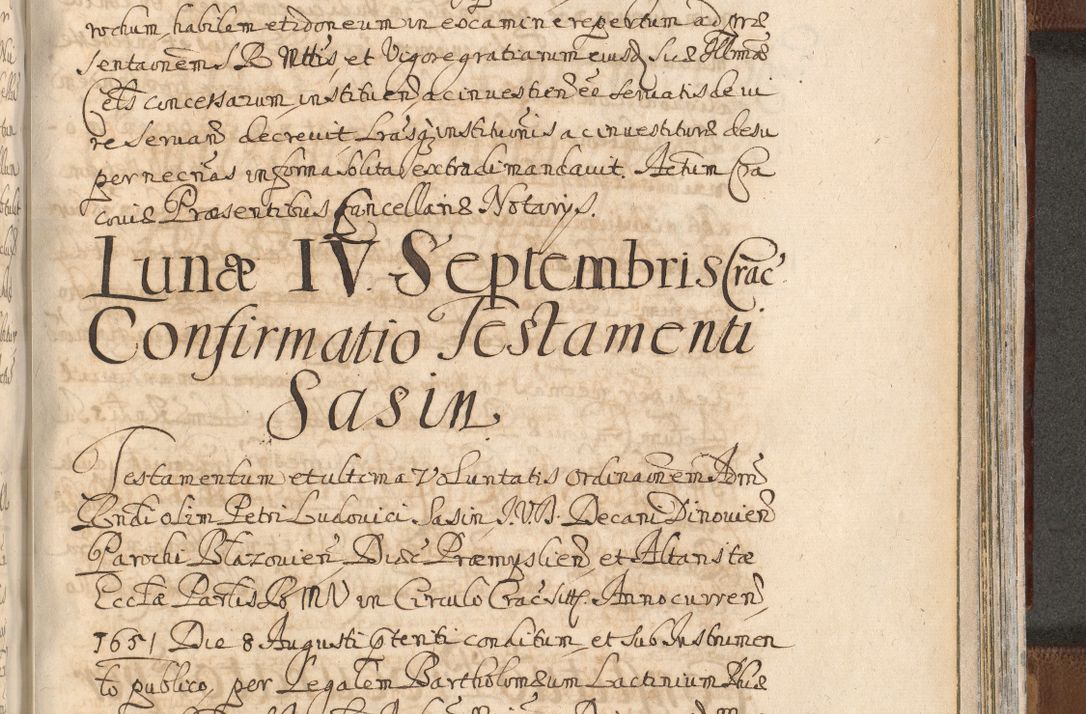 rochum, habilem et idoneum in examine repertum ad præ
sentaōnem S B Mttis, et Vigore gratiarum eiusq Suæ Illmæ
Cels concessarum instituen ac inuestien eo seruatis de iu
re seruan decreuit Lrasq institutōnis ac inuestituræ desu
per necrias in forma solita extradi mandauit. Actum Cra
couiæ Præsentibus Cancellariæ Notarys.
Lunæ IV. Septembris Crac.
Confirmatio Testamenti
Sasin
Testamentum et ultima Voluntatis ordinaōnem Adm
Rndi olim Petri Ludovici Sasin I.V.D. Decani Dinovien
Parochi Blazovien Diæc Præmyslien et Altaristæ
Ecclæ Partis B M V in Circulo Crac sitti. Anno curren
1651 Die 8 Augusti ptenti conditum et sub Instrumen
to publico, per Legalem Bartholomæum Lactinium